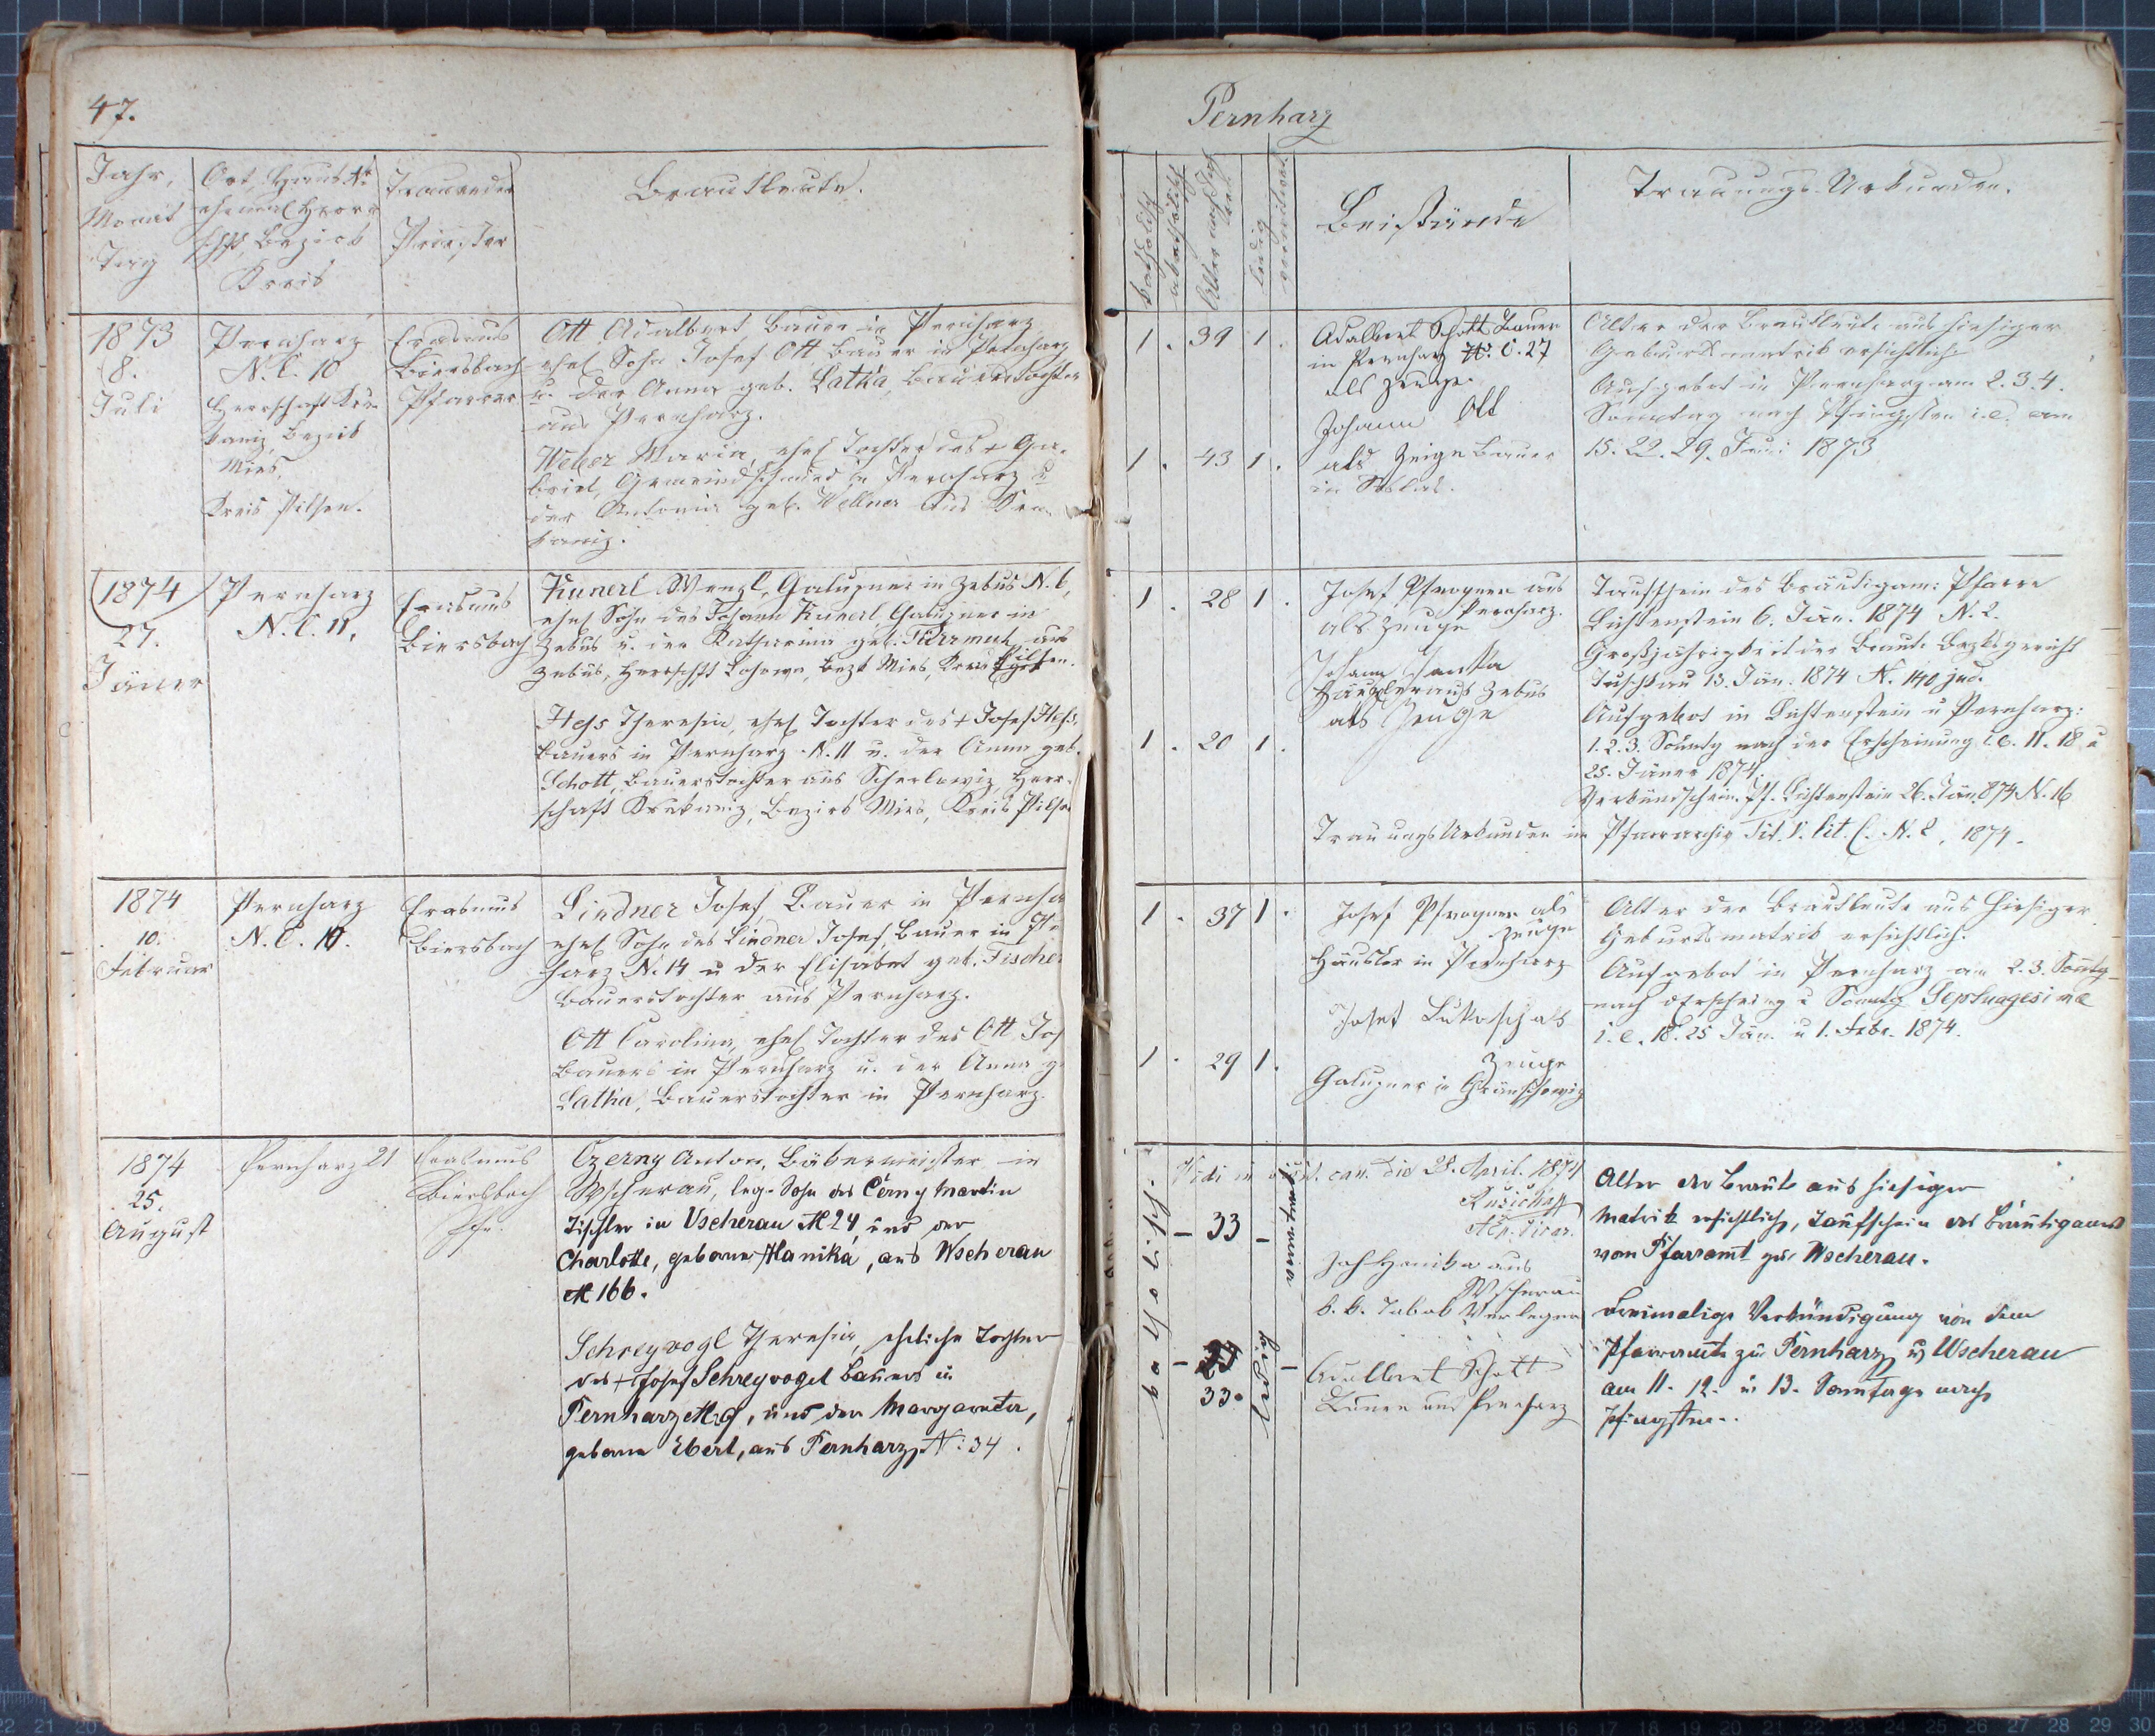 47.
Jahr,
Monat
Tag
Ort, Haus Nr.
ehemal. Herr-
schft, Bezirk
Kreis
Trauender
Priester
Brautleute.
1873
8.
Juli
Pernharz
N. C. 10
Herrschaft Kru-
kaniz, Bezirk
Mies,
Kreis Pilsen.
Erasmus
Biersbach
Pfarrer
Ott Adalbert, Bauer in Pernharz
ehel. Sohn Josef Ott Bauer in Pernharz
u. der Anna geb. Latka, Bauerstochter
aus Pernharz.
Weber Maria, ehel. Tochter des + Ga-
briel, Gemeindschmied in Pernharz u
der Antonia geb. Wellner aus Kru-
kaniz.
1874
27.
Jäner
Pernharz
N. C. 11.
Erasmus
Biersbach
Kunerl Wenzl, Galupner in Zebus N. 6,
ehel. Sohn des Johann Kunerl, Galupner in
Zebus u. der Katharina geb. aus
Zebus, Herrschft , Bezk Mies, Kreis Pilsen.
Hess Theresia, ehel. Tochter des + Josef Hess,
Bauers in Pernharz N. 11 u. der Anna geb.
Schott, Bauerstochter aus Scherlowiz, Herr-
schaft Krukaniz, Bezirk Mies, Kreis Pilsen
1874
10.
Februar
Pernharz
N. C. 10.
Erasmus
Biersbach
Lindner Josef, Bauer in Pernha
ehel. Sohn des Lindner Josef, Bauer in Per
harz N. 14 u der Elisabet geb. Fischer
Bauerstochter aus Pernharz.
Ott Carolina, ehel. Tochter des Ott Jos
Bauers in Pernharz u. der Anna g
Latka, Bauerstochter in Pernharz.
1874
25.
August
Pernharz 21
Erasmus
Biersbach
Pfr.
Czerny Anton, Bäkermeister in
Wscherau, leg. Sohn des Černy Martin
Tischler in Uscherau N 24, und der
Charlotte, geborne Hanika, aus Wscherau
N 166.
Schreyvogl Theresia, eheliche Tochter
des + Josef Schreyvogel Bauers in
Pernharz N. , und der Margaretha,
geborne Ebert, aus Pernharz, N: 34.
Pernharz
katholisch
akatholisch
Alter nach Jah
ren
ledig
verwitwet
Beistände
Trauungs-Urkunden.
1. 39 1.
1. 43 1.
Adalbert Schott Bauer
in Pernharz N. C. 27
als Zeuge.
Johann Ott
als Zeige Bauer
in
Alter der Brautleute aus hiesiger
Geburtsmatrik ersichtlich.
Aufgebot in Pernharz am 2. 3. 4.
Sonntag nach Pfingsten i. e. am
15. 22. 29. Juni 1873
1. 28 1.
1. 20 1.
Josef Pfrogner aus
Pernharz.
als Zeuge
Johann
Häusler aus Zebus
als Zeuge
Taufschein des Bräutigams: Pfarre
Lichtenstein 6. Jän. 1874 N. 2.
Großjährigkeit der Braut: Bezksgericht
Tuschkau 13. Jän. 1874 N. 140 jud.
Aufgebot in Lichtenstein u Pernharz:
1. 2. 3. Sonntg nach der Erscheinung i. e. 11. 18 u
25. Jäner 1874.
Verkündschein Pf. Lichtenstein 26. Jän. 874 N. 16
Trauungs Urkunden im Pfarrarchiv Tit. V. lit. C. N. 2, 1874.
1. 37 1.
1. 29 1.
Josef Pfrogner als
Zeuge
Häusler in Pernharz
Josef Lukesch als
Zeuge
Galupner in
Alter der Brautleute aus hiesiger
Geburtsmatrik ersichtlich.
Aufgebot in Pernharz am 2. 3. Sontg
nach dErscheing u Sonntg Septuagesimae
i. e. 18. 25 Jän. u 1. Febr. 1874.
Vidi in visit. can. die 28. April. 1874
Růžička
katholisch.
33
33.
verwitwet
ledig
Joh Hanika aus
Wscherau
k. k. Tabak Verleger
Adalbert Schott
Bauer aus Pernharz
Alter der Braut aus hiesiger
Matrik ersichtlich, Taufschein des Bräutigams
vom Pfarramt zu Wscherau.
Dreimalige Verkündigung von dem
Pfarramte zu Pernharz u Uscherau
am 11. 12. u 13. Sonntage nach
Pfingsten.